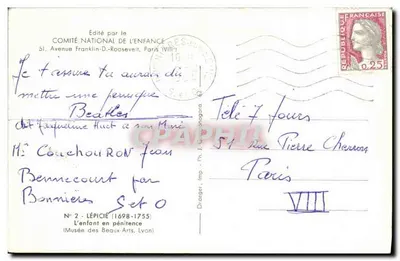 Edité par le
COMITÉ NATIONAL DE L'ENFANCE
51, Avenue Franklin-D.-Roosevelt, Paris (VIIIe)
RÉPUBLIQUE FRANÇAISE
0,25
Je t'assure tu aurais dû
mettre une perruque
Beatles
dit Jacqueline Huet à son Mari
Mr COUCHOURON Jean
Bennecourt par
Bonnières S et O
Télé 7 Jours
51 rue Pierre Charron
Paris
VIII
CPARAMA
N° 2 - LÉPICIÉ (1698-1755)
L'enfant en pénitence
(Musée des Beaux-Arts, Lyon)